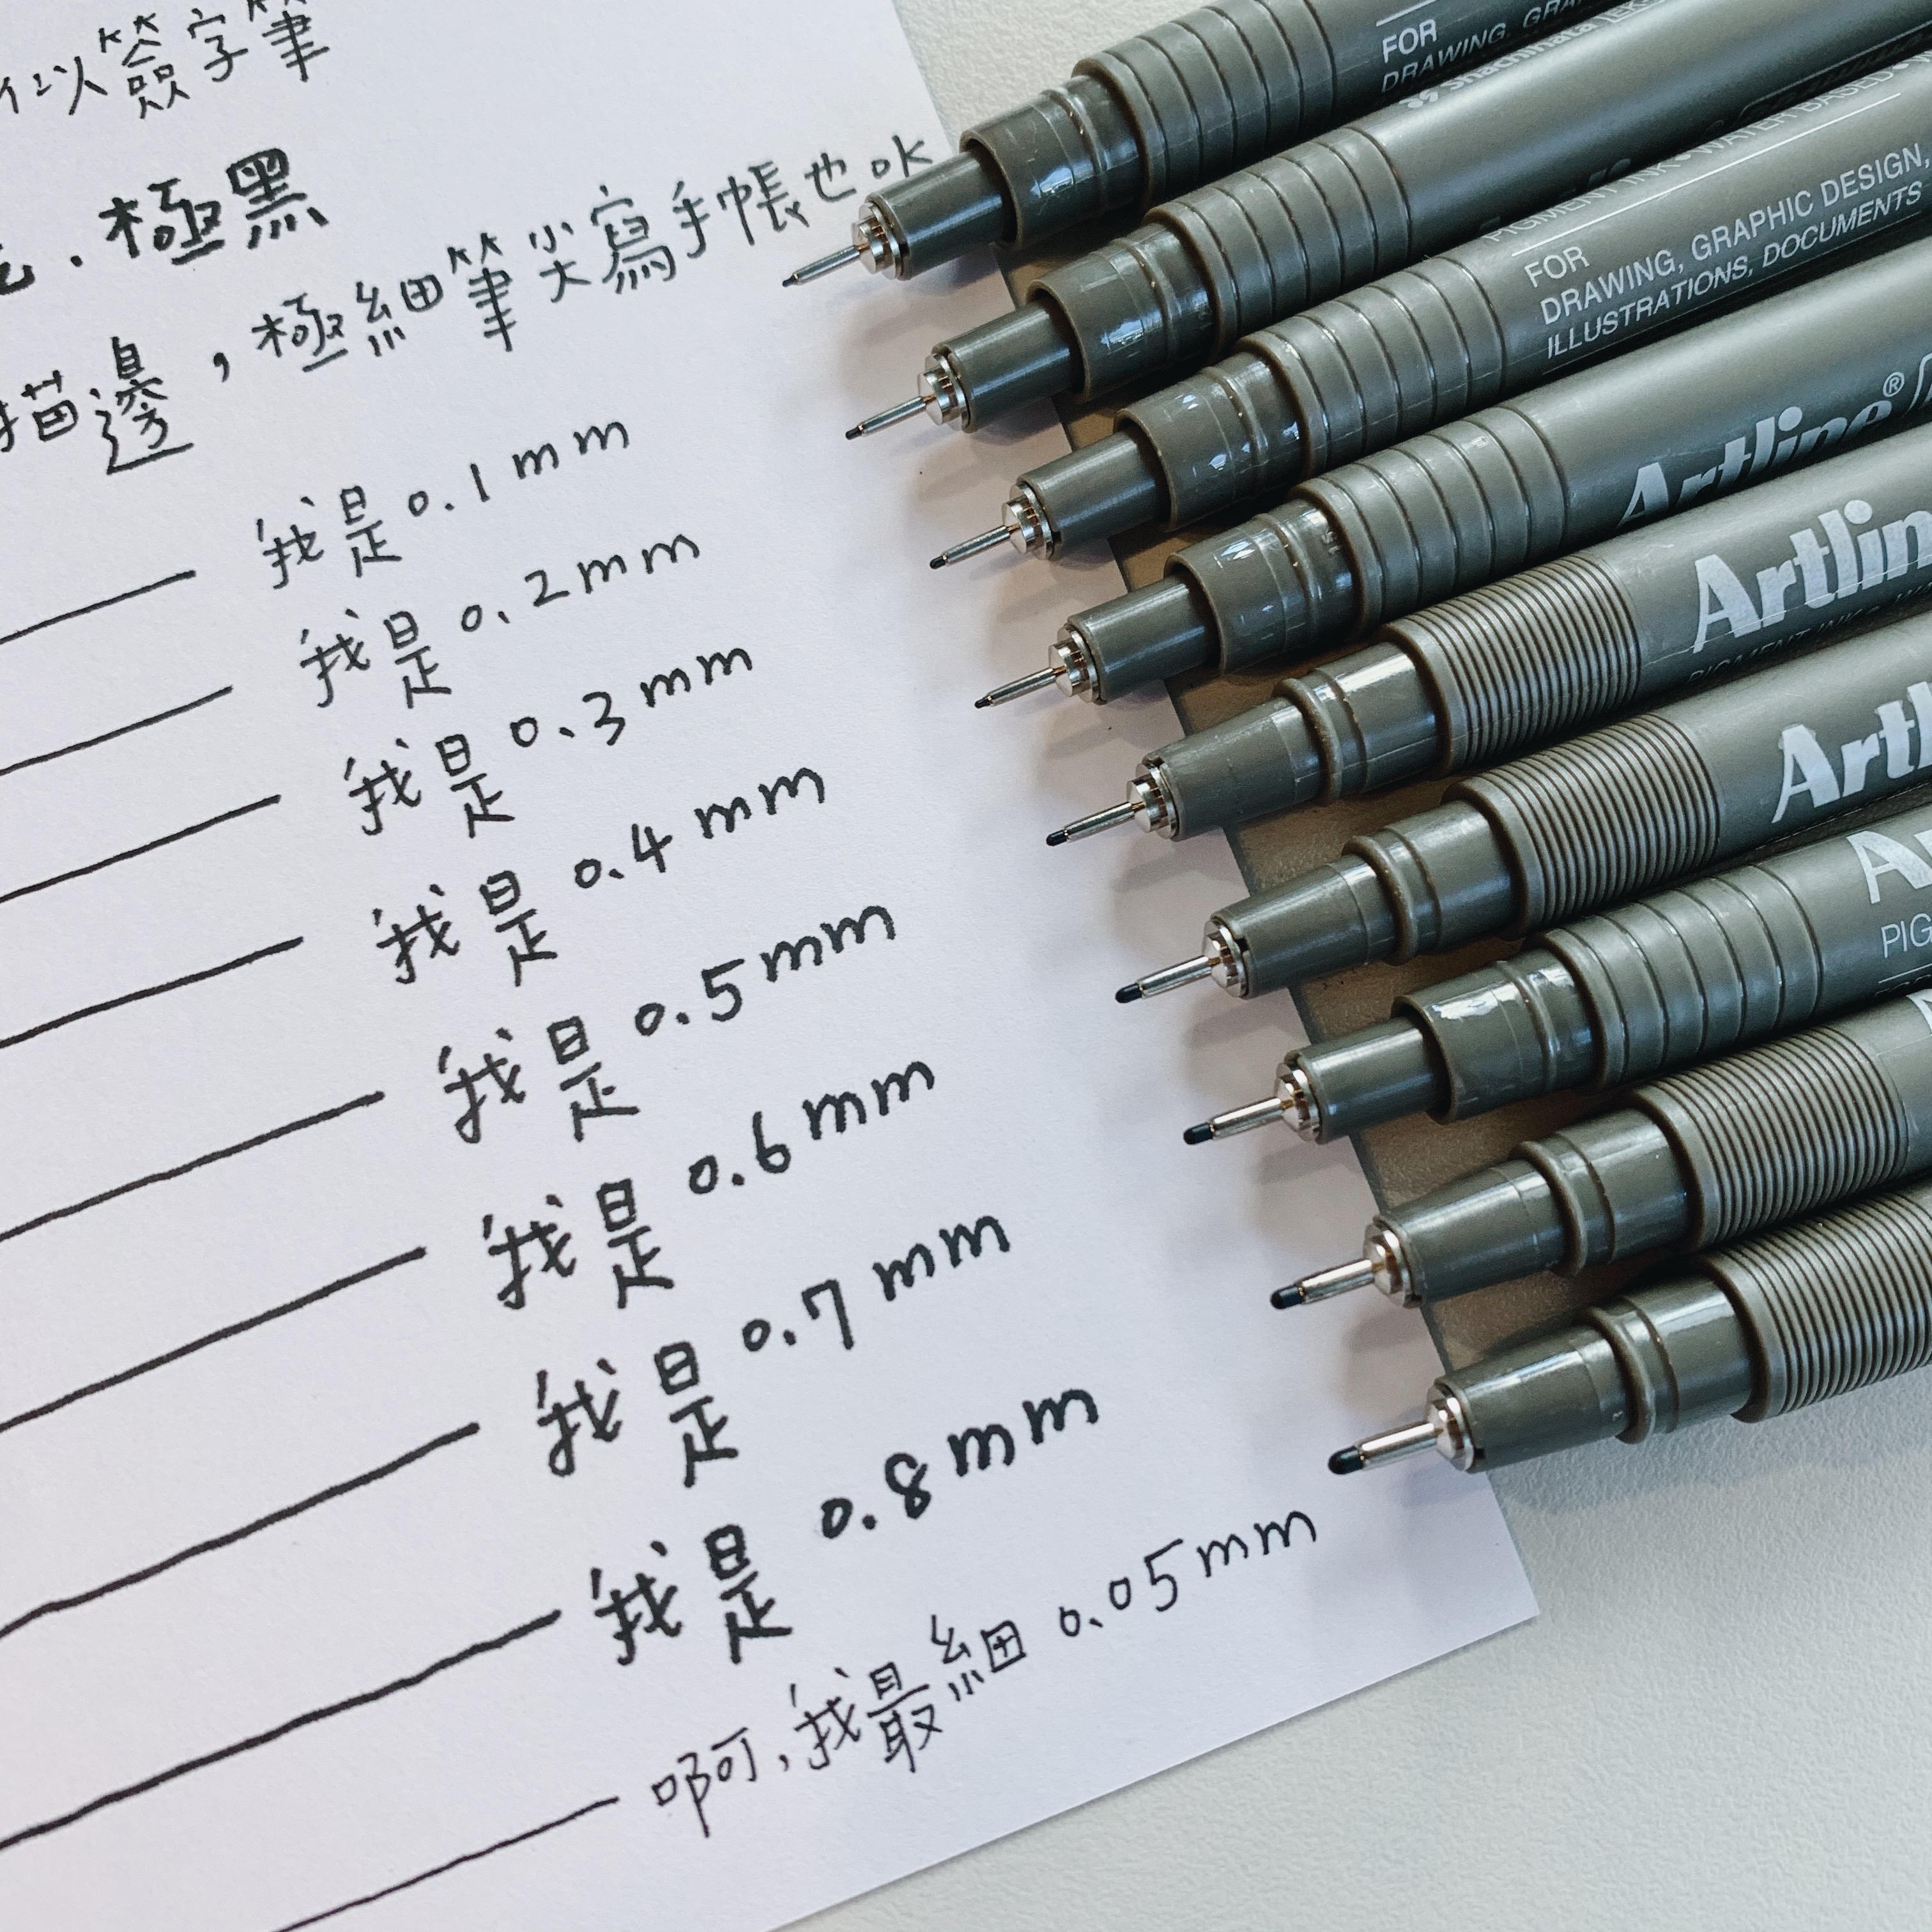 以簽字筆
.極黑
描邊,極細筆尖寫手帳也ok
我是0.1mm
我是0.2mm
我是0.3mm
我是0.4mm
我是0.5mm
我是0.6mm
我是0.7mm
我是0.8mm
啊,我最細0.05mm
FOR
DRAWING, GRA
Shachihata
PIGMENT INK•WATER BASED
FOR
DRAWING, GRAPHIC DESIGN,
ILLUSTRATIONS, DOCUMENTS
Artline®
Artlin
PIGMENT INK
Artl
A
PIG